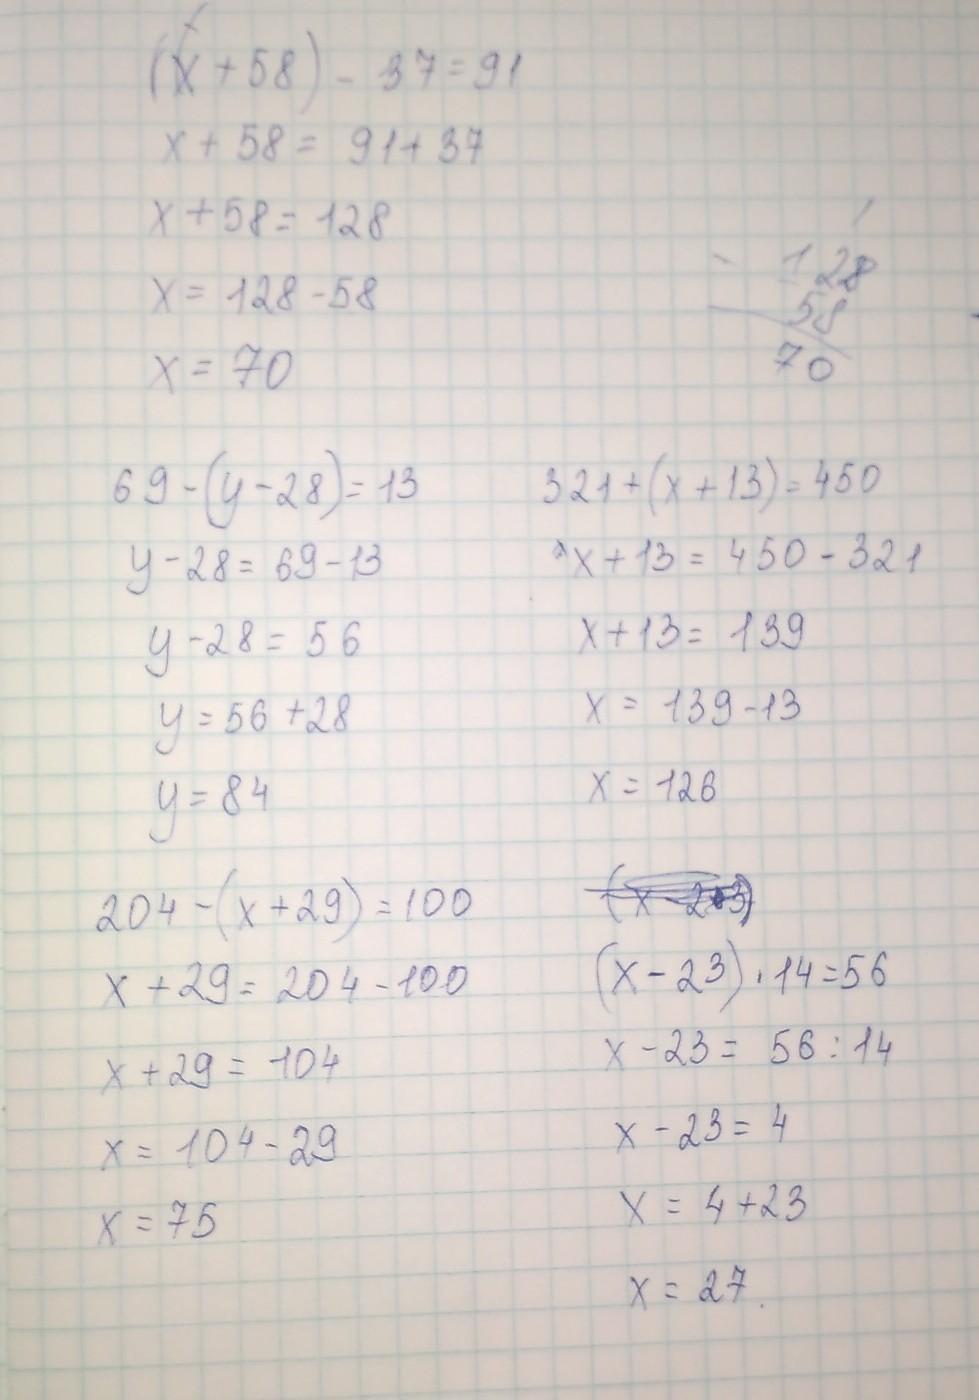 (x + 58) - 37 = 91
x + 58 = 91 + 37
x + 58 = 128
x = 128 - 58
x = 70
- 128
58
70
69 - (y - 28) = 13
y - 28 = 69 - 13
y - 28 = 56
y = 56 + 28
y = 84
321 + (x + 13) = 450
x + 13 = 450 - 321
x + 13 = 139
x = 139 - 13
x = 126
204 - (x + 29) = 100
x + 29 = 204 - 100
x + 29 = 104
x = 104 - 29
x = 75
(x - 23) · 14 = 56
x - 23 = 56 : 14
x - 23 = 4
x = 4 + 23
x = 27.